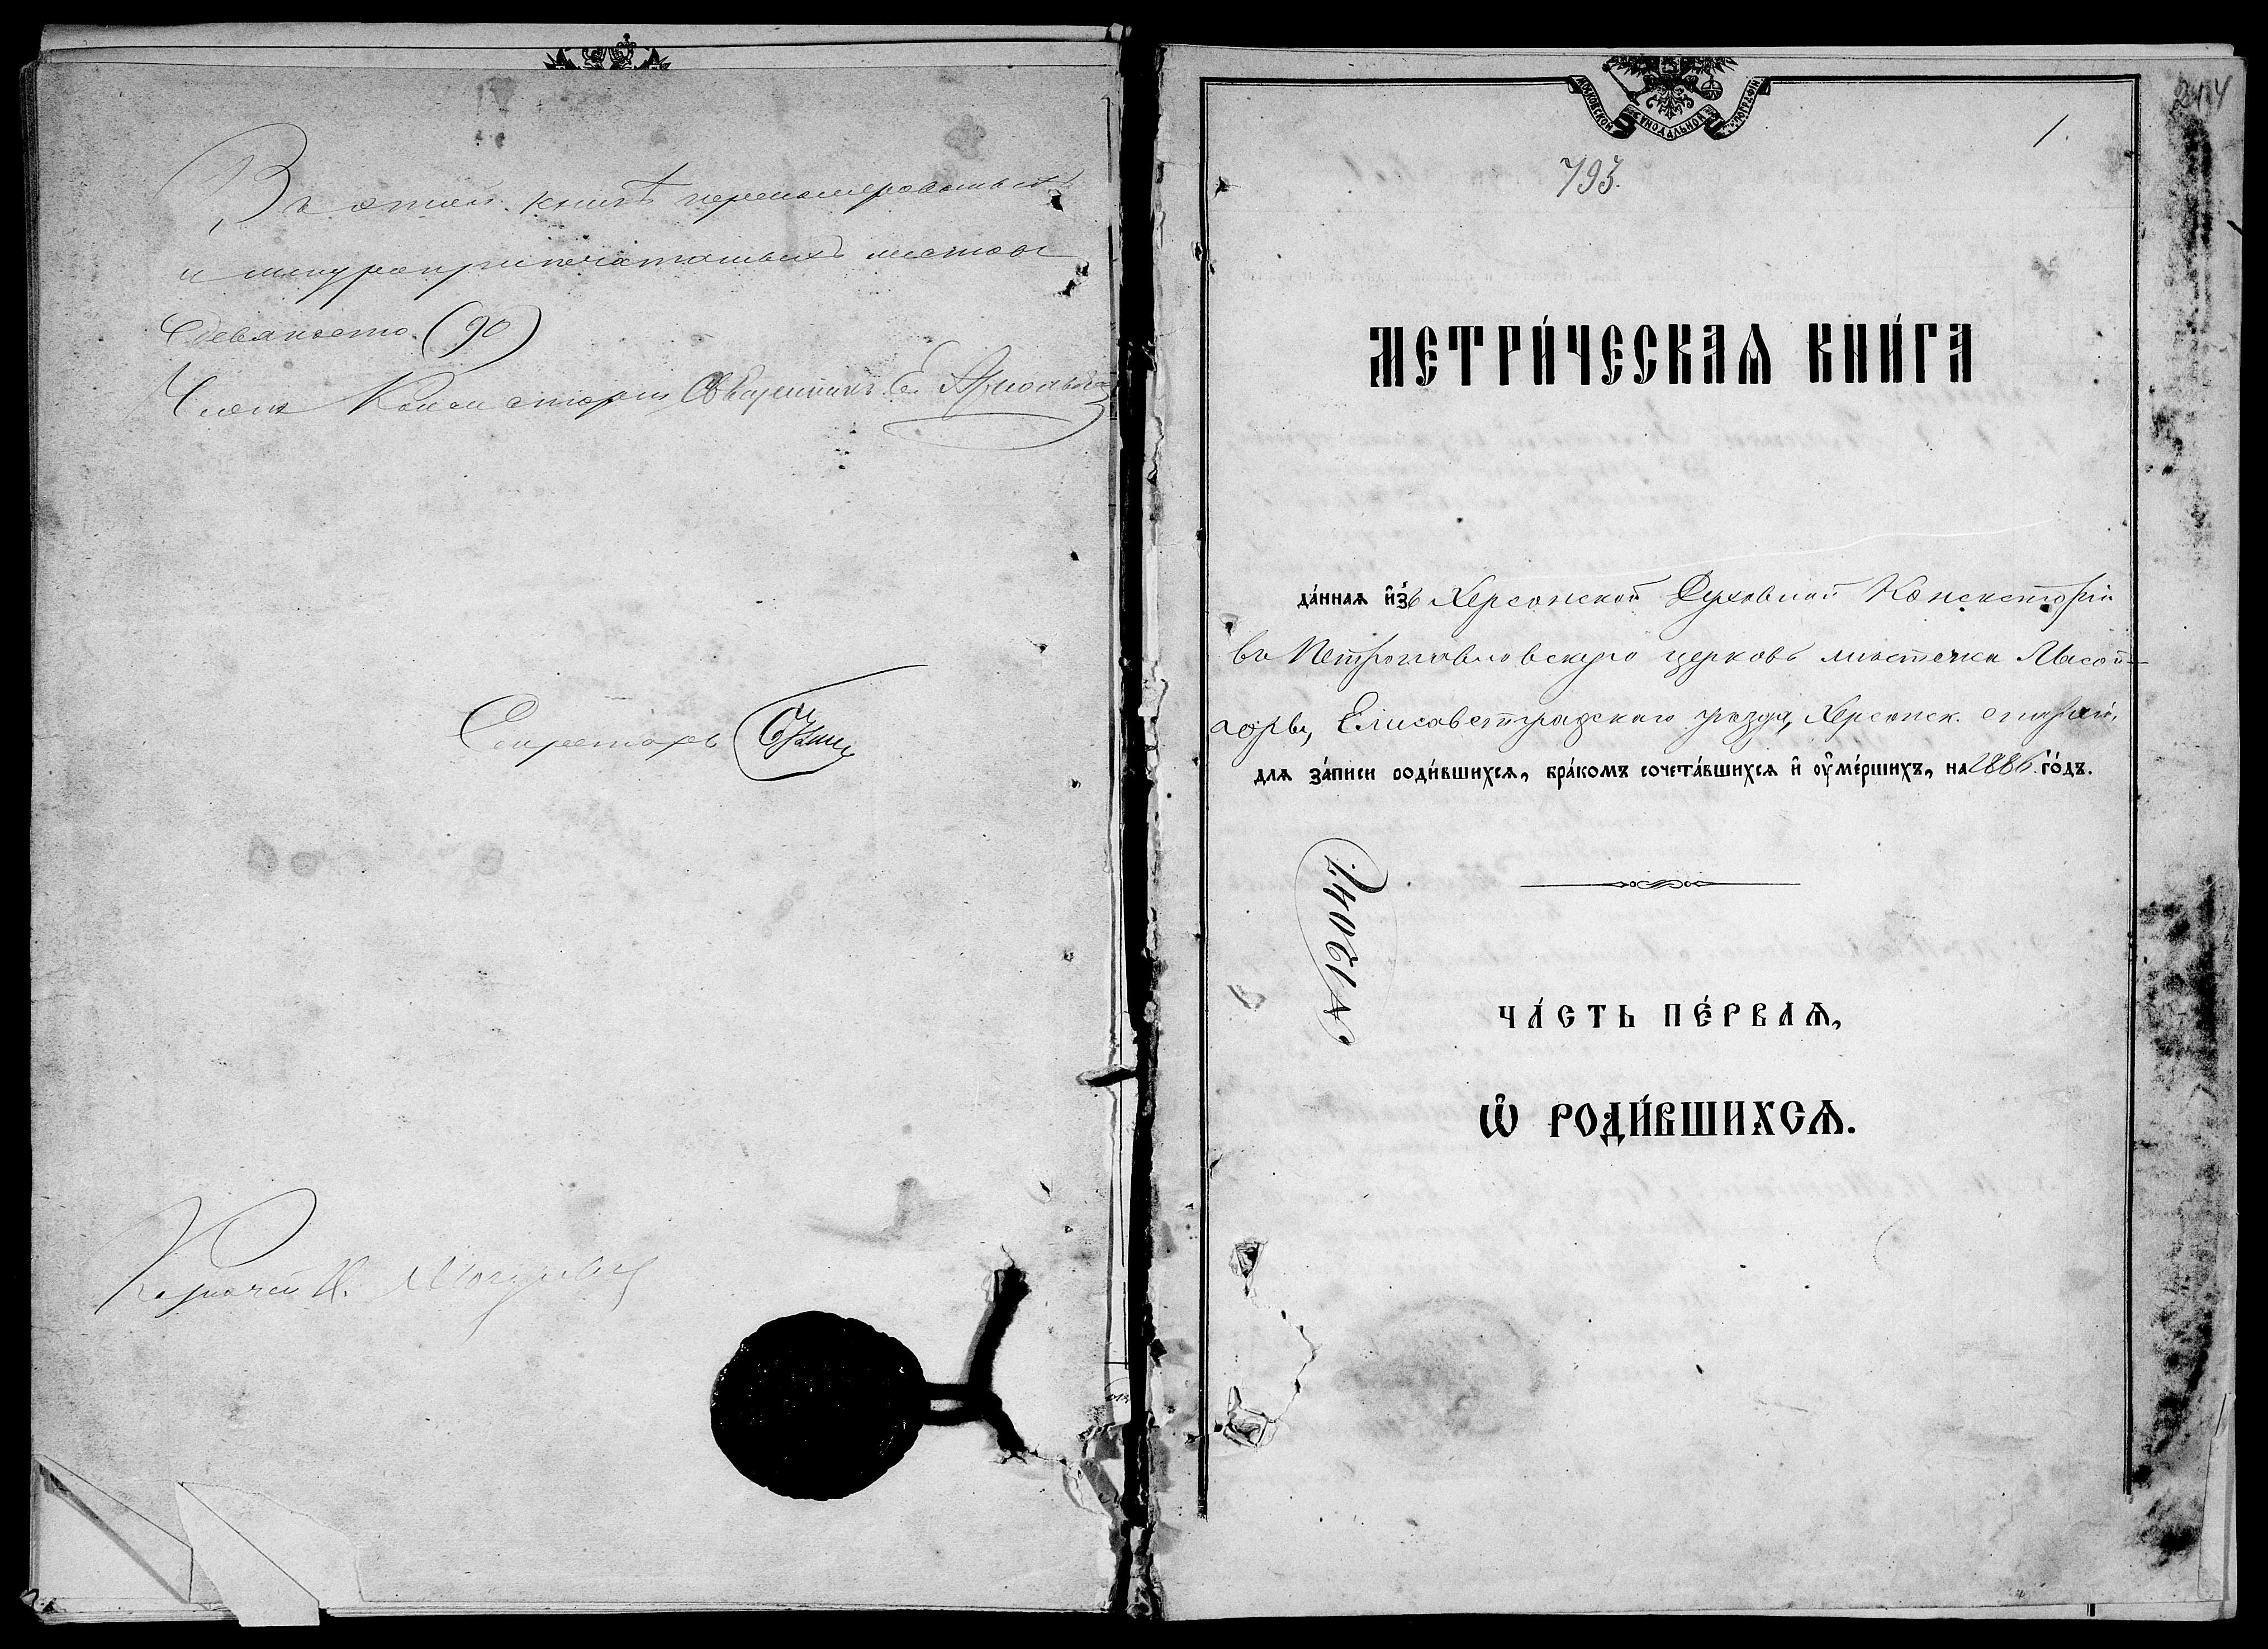 Въ этой книгѣ перенумерованныхъ
и шнуроприпечатанныхъ листовъ
девяносто (90)
Членъ Консисторіи, Священникъ Е.
Секретарь
Казначей И.
МОСКОВСКОЙ СѴНОДАЛЬНОЙ ТѴПОГРАФІИ
1.
793.
МЕТРИ́ЧЕСКАѦ КНИ́ГА
да́нная и҆зъ Херсонской Духовной Консисторіи
въ Петропавловскую церковь мѣстечка Лысой
горы, Елисаветградскаго уѣзда, Херсонск. епархіи,
для за́писи роди́вшихся, бра́комъ сочета́вшихся и҆ оу҆ме́ршихъ, на 1886 го́дъ.
№ 12047.
ЧА́СТЬ ПЕ́РВАѦ,
Ѽ РОДИ́ВШИХСѦ.